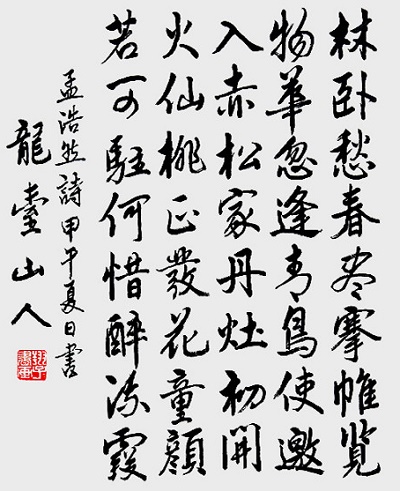 林卧愁春尽搴帷览
物華忽逢青鳥使邀
入赤松家丹灶初開
火仙桃正發花童顔
若可駐何惜醉流霞
孟浩然詩甲午夏日書
龍臺山人